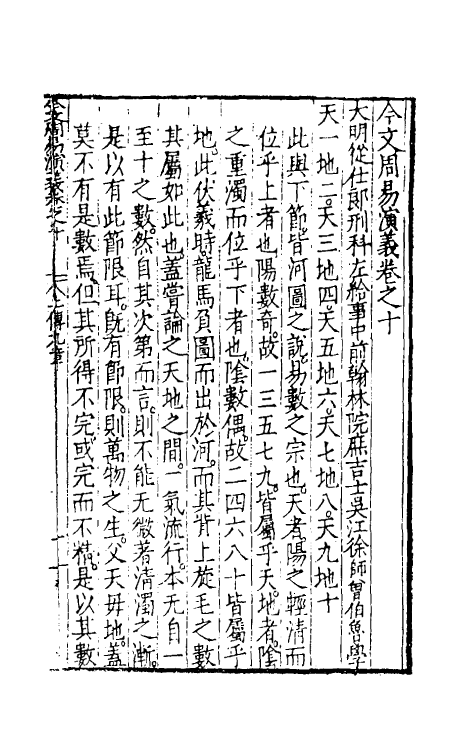 今文周易演義卷之十
大明從仕郎刑科左給事中前翰林院庶吉士吳江徐師曾伯魯學
天一地二。天三地四。天五地六。天七地八。天九地十
此與下節。皆河圖之說。易數之宗也。天者陽之輕清而
位乎上者也。陽數奇。故一三五七九。皆屬乎天。地者。陰
之重濁而位乎下者也。陰數偶。故二四六八十皆屬乎
地。此伏羲時。龍馬負圖而出於河。而其背上旋毛之數
其屬如此也。蓋嘗論之天地之間。一氣流行。本无自一
至十之數。然自其次第而言。則不能无微著清濁之漸。
是以有此節限耳。旣有節限。則萬物之生。父天母地。蓋
莫不有是數焉。但其所得不完。或完而不精。是以其數
今文周易演義卷之十 八上傳九章 一